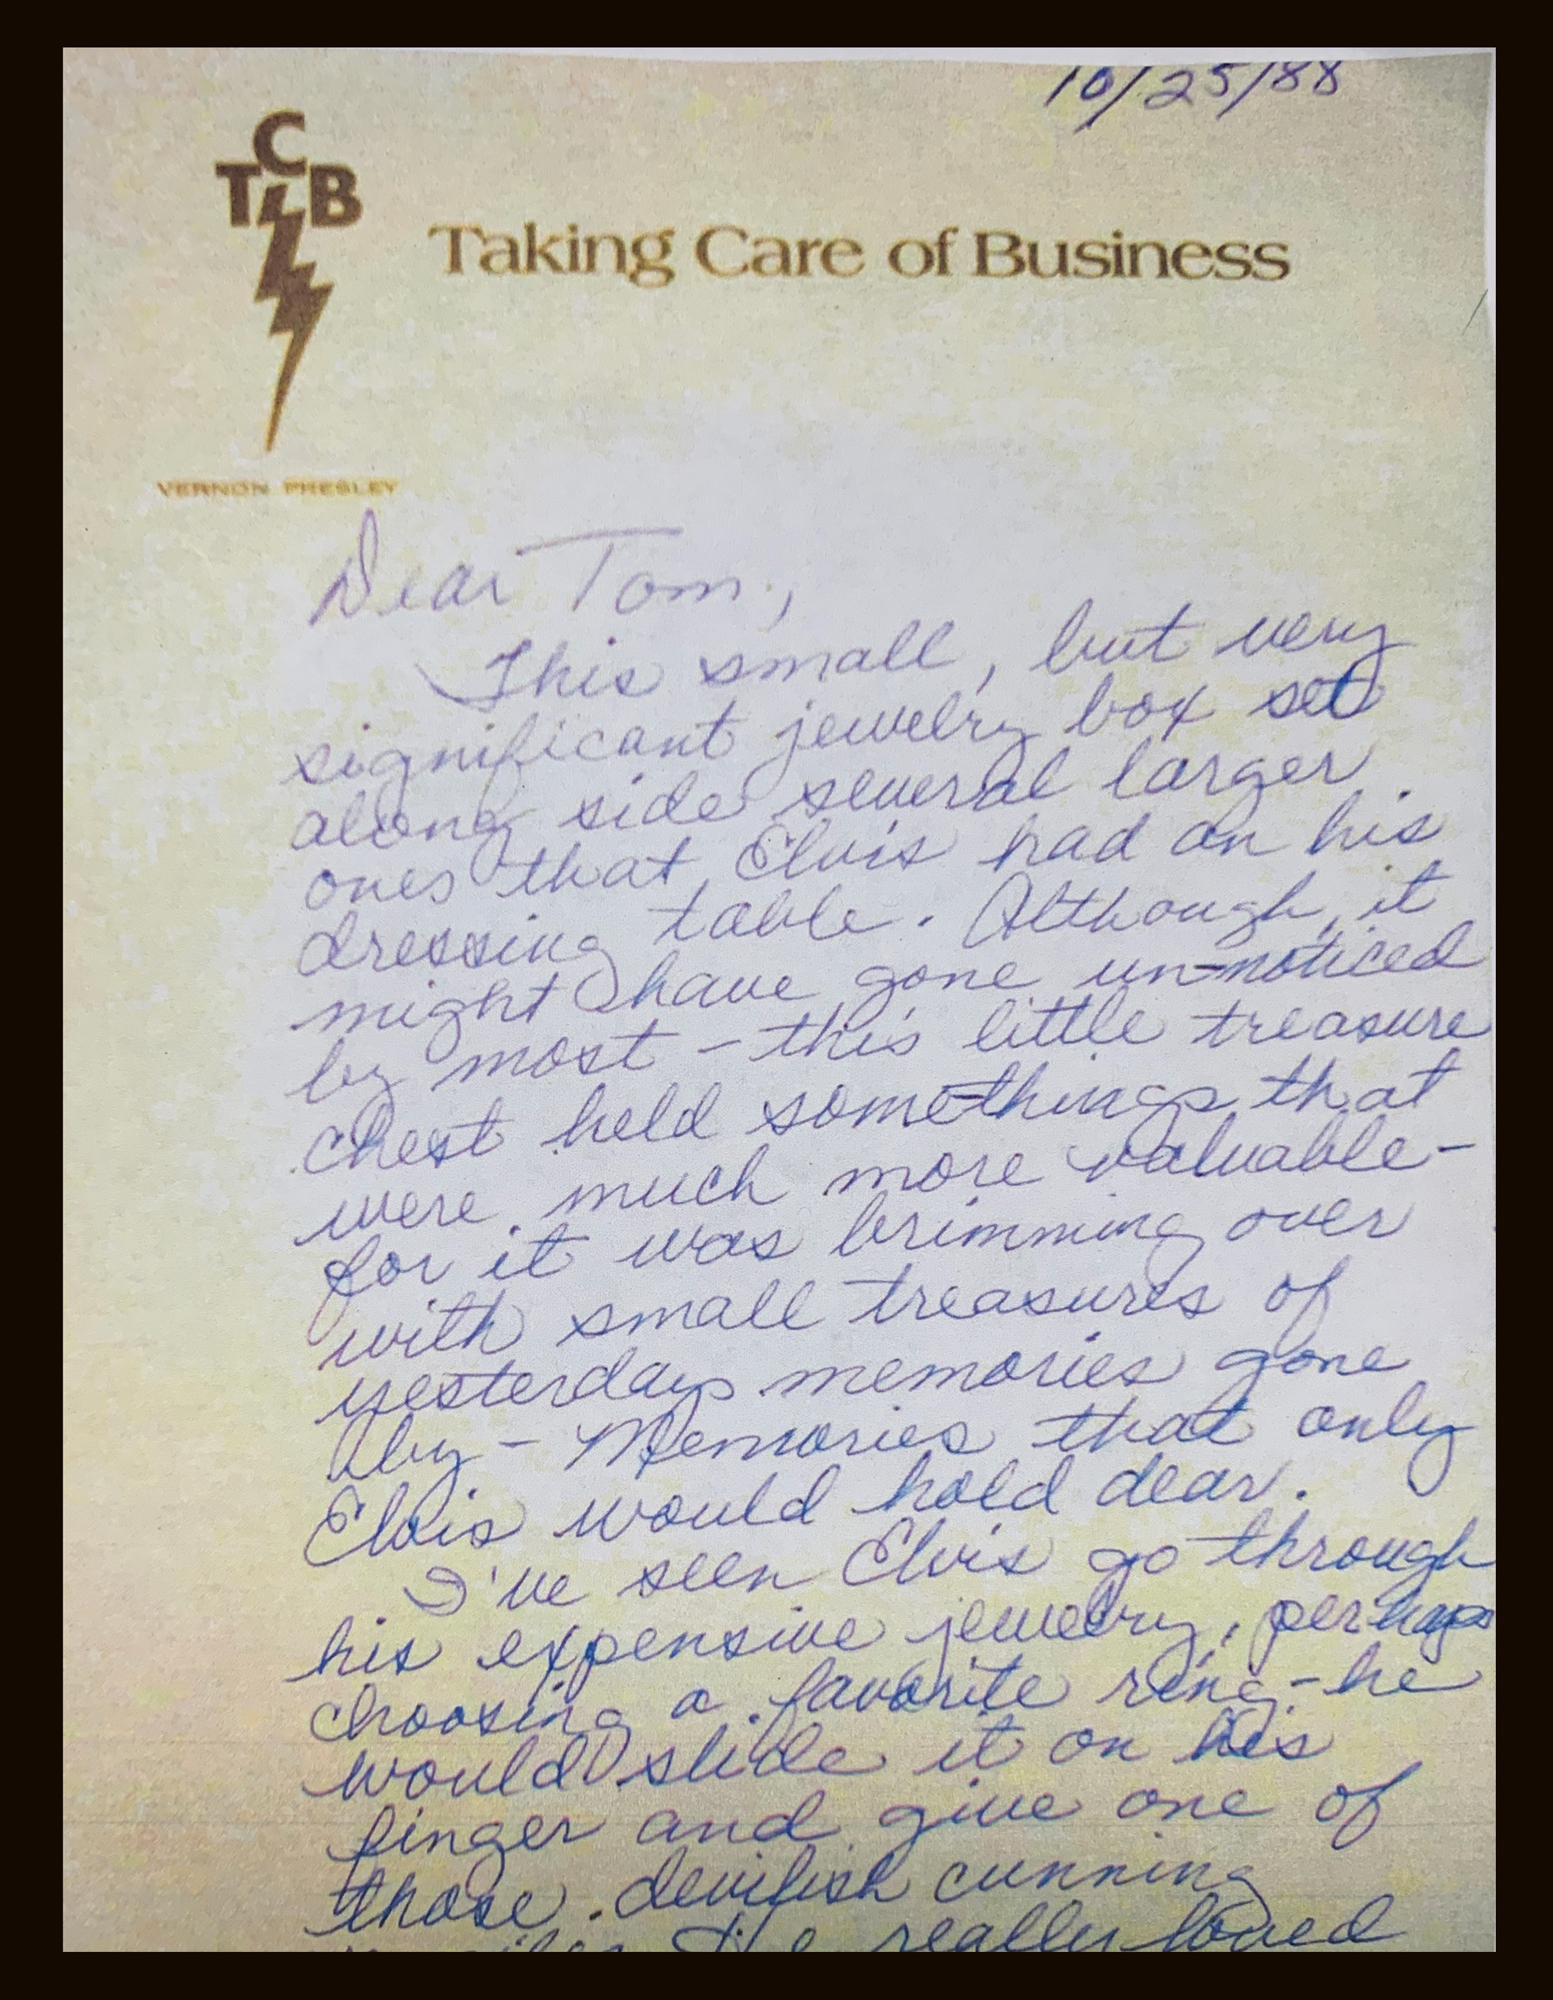 10/25/88
TCB
Taking Care of Business
VERNON PRESLEY
Dear Tom,
This small, but very
significant jewelry box set
along side several larger
ones that Elvis had on his
dressing table. Although, it
might have gone un-noticed
by most - this little treasure
chest held some-things that
were much more valuable-
for it was brimming over
with small treasures of
yesterdays memories gone
by - Memories that only
Elvis would hold dear.
I've seen Elvis go through
his expensive jewelry, perhaps
choosing a favorite ring - he
would slide it on his
finger and give one of
those devilish cunning
really loved